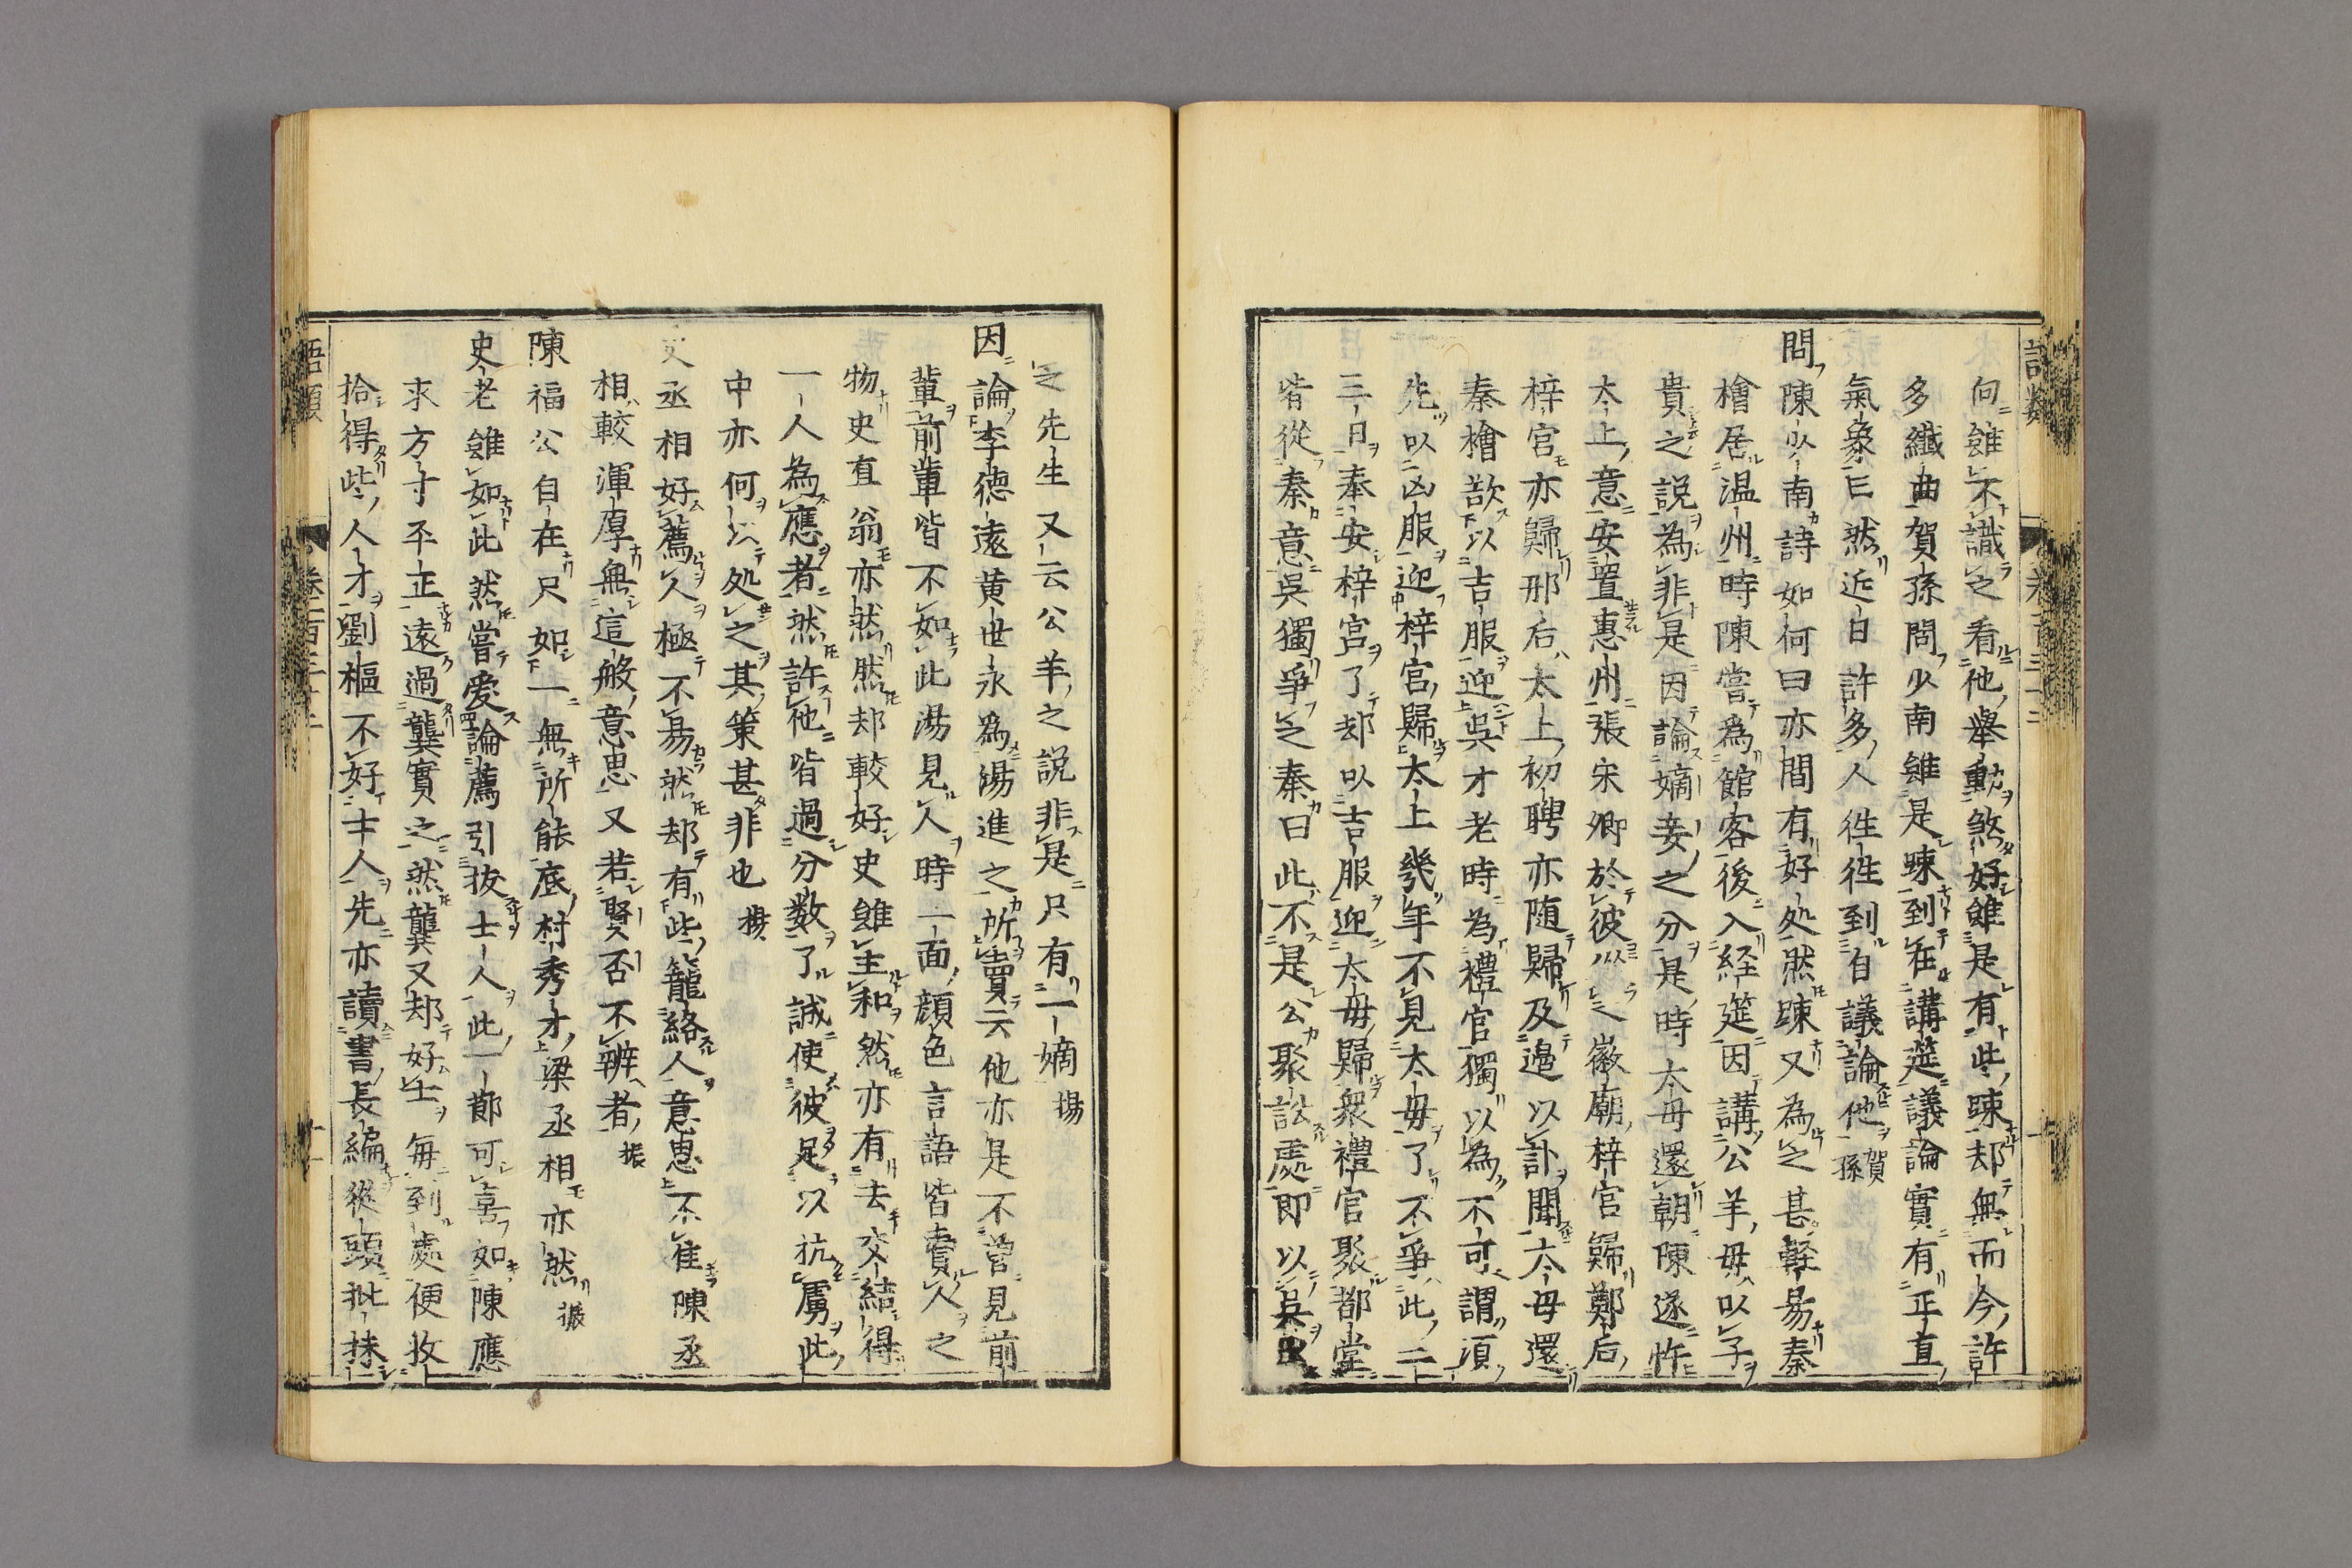 何雖不識之看他舉動煞好雖是有些踈却無而今許
多纖曲賀孫問少南雖是踈到在講筵議論實有正直
氣象曰然近日許多人徃徃到自議論他賀孫
問陳少南詩如何曰亦間有好処然踈又為之甚輕易秦
檜居温州時陳嘗為館客後入経筵因講公羊毋以子
貴之說為非是因論嫡妾之分是時太母還朝陳遂忤
太上意安置惠州張宋卿於彼從之徽廟梓宮歸鄭后
梓宮亦歸邢后太上初聘亦随歸及邉以訃聞太母還
秦檜欲以吉服迎吳才老時為禮官獨以為不可謂須
先以凶服迎梓宮歸太上幾年不見太母了不爭此二
三日奉安梓宮了却以吉服迎太毋歸衆禮官聚都堂
皆從秦意吳獨爭之秦曰此不是公聚訟處即以吳
之先生又云公羊之說非是只有一嫡揚
因論李德遠黄世永為湯進之所賣云他亦是不曾見前
輩前輩皆不如此湯見人時一面顔色言語皆賣人之
物史直翁亦然然却較好史雖主和然亦有去交結得
一人為應者然許他皆過分數了誠使彼足以抗虜此
中亦何以処之其策甚非也揚
史丞相好薦人極不易然却有些籠絡人意思不隹陳丞
相較渾厚無這般意思又若賢否不辨者振
陳福公自在只如一無所能底村秀才梁丞相亦然振
史老雖如此然嘗愛論薦引抜士人此一節可喜如陳應
求方寸平正遠過龔實之然龔又却好士毎到處便收
拾得些人才劉樞不好士人先亦讀書長編從頭批抹
語類
卷百三十二
十一